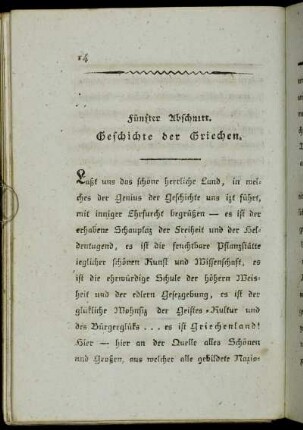 14
Fünfter Abschnitt.
Geschichte der Griechen.
Laßt uns das schöne herrliche Land, in wel-
ches der Genius der Geschichte uns izt führt,
mit inniger Ehrfurcht begrüßen — es ist der
erhabene Schauplaz der Freiheit und der Hel-
dentugend, es ist die fruchtbare Pflanzstätte
jeglicher schönen Kunst und Wissenschaft, es
ist die ehrwürdige Schule der höhern Weis-
heit und der edlern Gesezgebung, es ist der
glükliche Wohnsiz der Geistes-Kultur und
des Bürgerglüks... es ist Griechenland!
Hier — hier an der Quelle alles Schönen
und Großen, aus welcher alle gebildete Nazio-